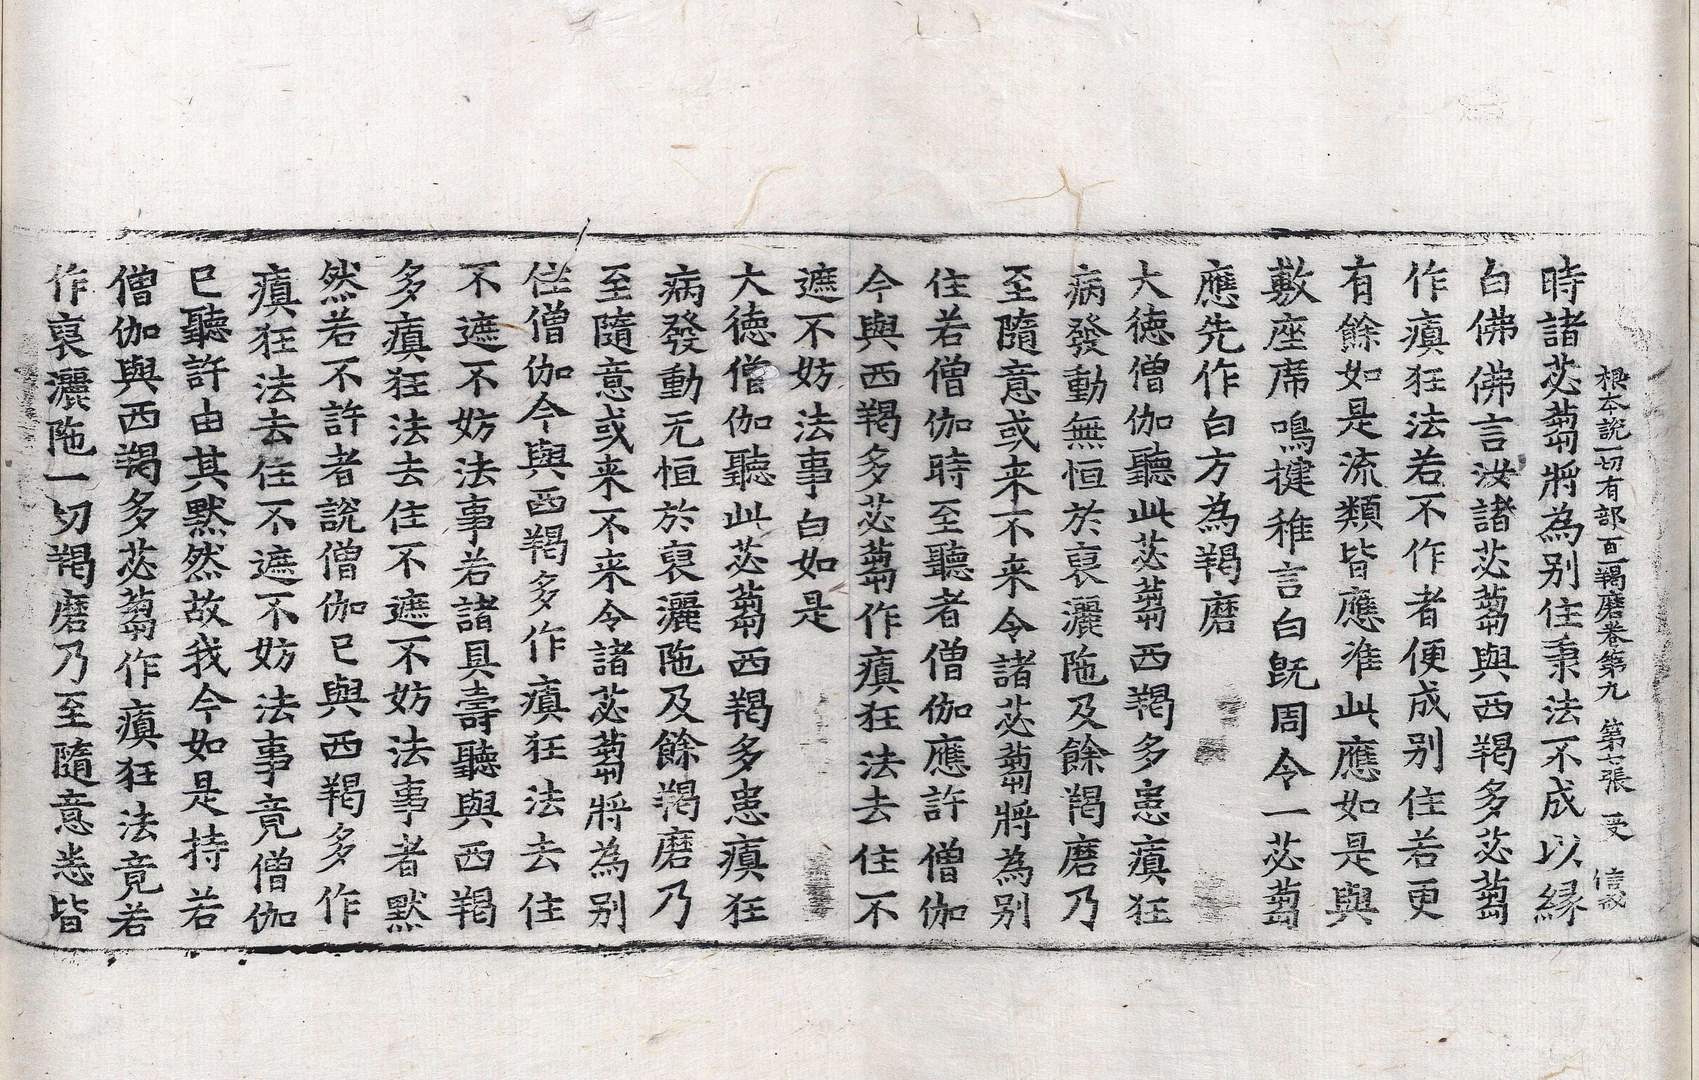 根本說一切有部百一羯磨卷第九　第七張　受　信敬
時諸苾蒭將為別住秉法不成以緣
白佛佛言汝諸苾蒭與西羯多苾蒭
作瘨狂法若不作者便成別住若更
有餘如是流類皆應准此應如是與
敷座席鳴揵稚言白既周令一苾蒭
應先作白方為羯磨
大徳僧伽聽此苾蒭西羯多患瘨狂
病發動無恒於裒灑陁及餘羯磨乃
至隨意或来不来令諸苾蒭將為別
住若僧伽時至聽者僧伽應許僧伽
今與西羯多苾蒭作瘨狂法去住不
遮不妨法事白如是
大徳僧伽聽此苾蒭西羯多患瘨狂
病發動无恒於裒灑陁及餘羯磨乃
至隨意或来不来令諸苾蒭將為別
住僧伽今與西羯多作瘨狂法去住
不遮不妨法事若諸具壽聽與西羯
多瘨狂法去住不遮不妨法事者默
然若不許者說僧伽已與西羯多作
瘨狂法去住不遮不妨法事竟僧伽
已聽許由其默然故我今如是持若
僧伽與西羯多苾蒭作瘨狂法竟若
作裒灑陁一切羯磨乃至隨意悉皆